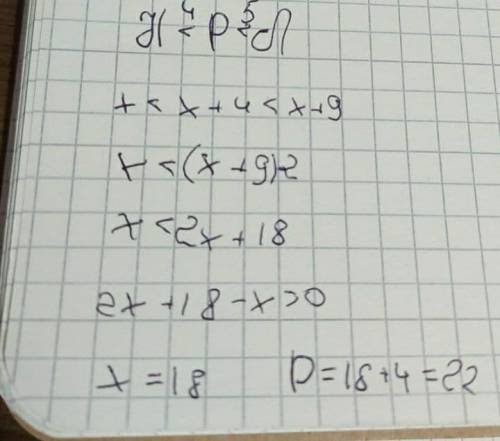 x < x + 4 < x + 9
x < (x + 9) 2
x < 2x + 18
2x + 18 - x > 0
x = 18 P = 18 + 4 = 22